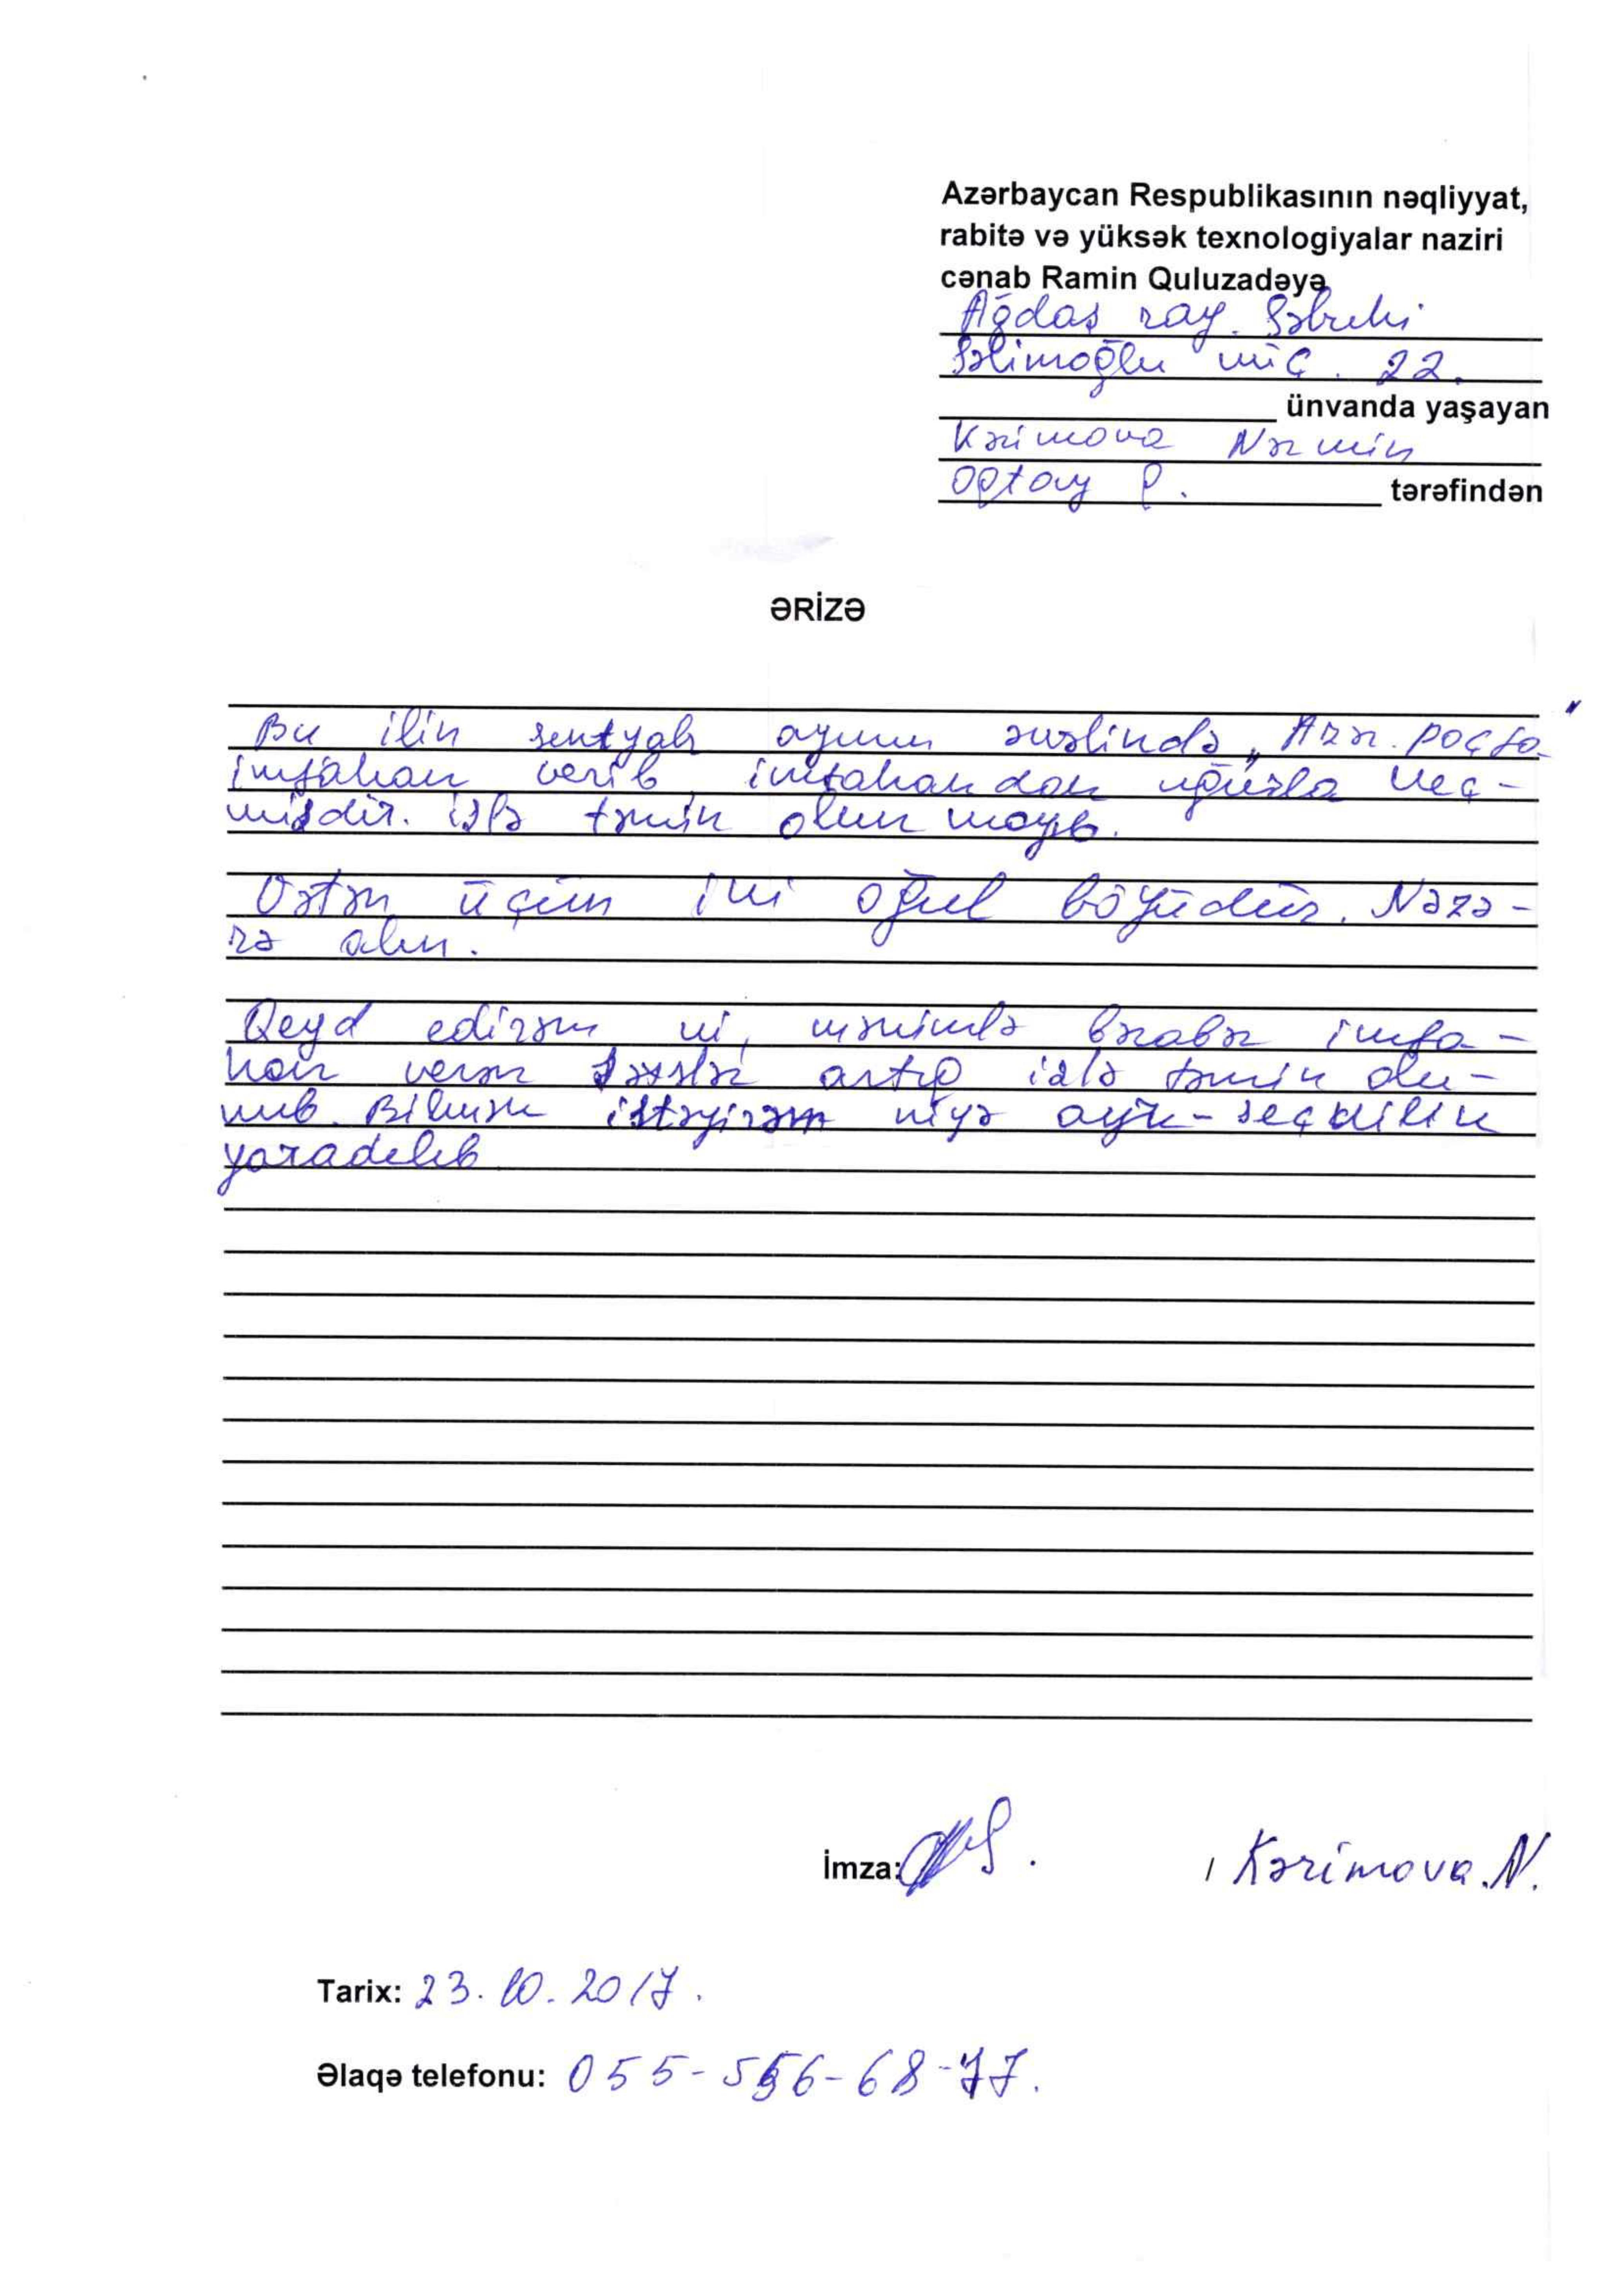 Azərbaycan Respublikasının nəqliyyat,
rabitə və yüksək texnologiyalar naziri
cənab Ramin Quluzadəyə
Ağdaş ray.
Səlimoğlu küç. 22.
ünvanda yaşayan
Kərimova Nərmin
Oqtay q. tərəfindən
ƏRİZƏ
Bu ilin sentyabr ayının əvvəlində „Azər. poçta"
imtahan verib, imtahandan uğurla keç-
mişdir. işlə təmin olunmayıb.
Vətən üçün iki oğul böyüdür. Nəzə-
rə alın.
Qeyd edirəm ki, mənimlə bərabər imta-
han verən artıq işlə təmin olu-
nub. Bilmək istəyirəm niyə ayrı-seçkilik
yaradılıb
İmza: / Kərimova.N.
Tarix: 23.10.2017.
Əlaqə telefonu: 055-556-68-77.